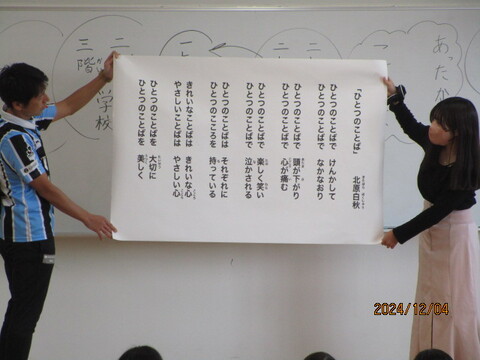 あったか
「ひとつのことば」
北原白秋
ひとつのことばで けんかして
ひとつのことばで なかなおり
ひとつのことばで 頭が下がり
ひとつのことばで 心が痛む
ひとつのことばで 楽しく笑い
ひとつのことばで 泣かされる
ひとつのことばは それぞれに
ひとつのこころを 持っている
きれいなことばは きれいな心
やさしいことばは やさしい心
ひとつのことばを 大切に
ひとつのことばを 美しく
学校
三階
2024/12/04